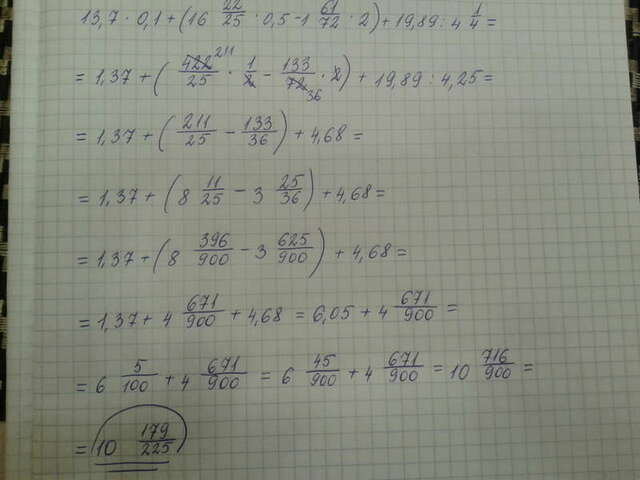 13,7 · 0,1 + (16 22/25 · 0,5 - 1 61/72 · 2) + 19,89 : 4 1/4 =
= 1,37 + (422 211/25 · 1/2 - 133/72 36 · 2) + 19,89 : 4,25 =
= 1,37 + (211/25 - 133/36) + 4,68 =
= 1,37 + (8 11/25 - 3 25/36) + 4,68 =
= 1,37 + (8 396/900 - 3 625/900) + 4,68 =
= 1,37 + 4 671/900 + 4,68 = 6,05 + 4 671/900 =
= 6 5/100 + 4 671/900 = 6 45/900 + 4 671/900 = 10 716/900 =
= 10 179/225